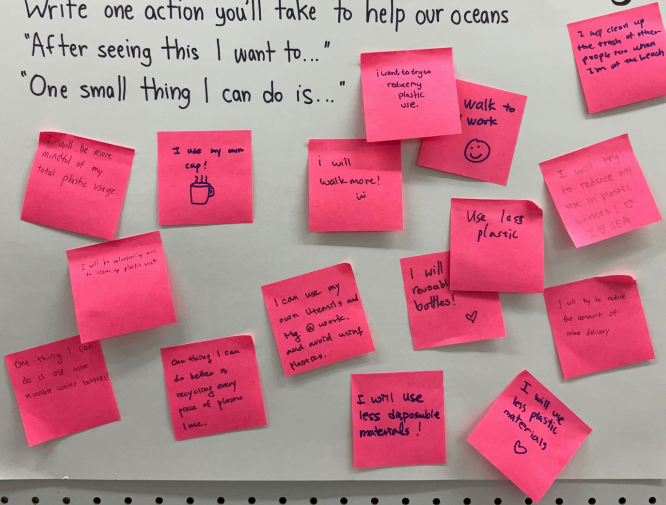 Write one action you'll take to help our oceans
"After seeing this I want to..."
"One small thing I can do is..."
I will clean up
the trash of other
people too when
I'm at the beach
i want to try to
reduce my
plastic
use.
walk to
work
I will be more
mindful of my
total plastic usage
I use my own
cup!
i will
walk more!
I will try
to reduce my
use in plastic
bottles!
I ♡ SEA
Use less
plastic
I will be volunteering
to clean up plastic waste
I can use my
own Utensils and
Mg @ work.
and avoid using
plastics.
I will
reusable
bottles!
I will try to reduce
the amount of
delivery
One thing I can
do is use more
reusable water bottles!
One thing I can
do better is
recycling every
piece of plastic
I use.
I will use
less disposable
materials!
I will use
less plastic
materials